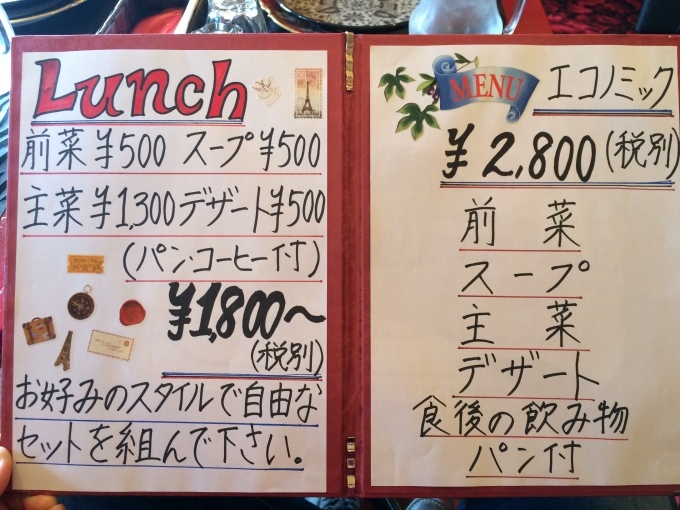 Lunch
前菜¥500 スープ¥500
主菜¥1,300デザート¥500
(パン・コーヒー付)
¥1,800〜
(税別)
お好みのスタイルで自由な
セットを組んで下さい。
MENU エコノミック
¥2,800(税別)
前菜
スープ
主菜
デザート
食後の飲み物
パン付